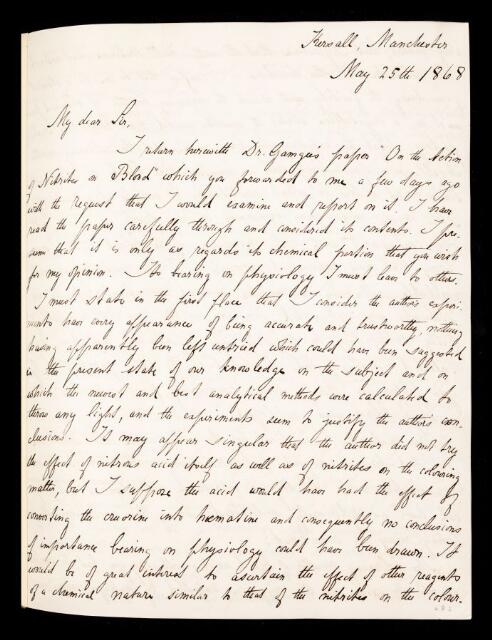 Kersall, Manchester
May 25th 1868
My dear Sir,
I return herewith Dr. Gamgee's paper "On the Action
of Nitrites on Blood" which you forwarded to me a few days ago
with the request that I would examine and report on it. I have
read the paper carefully through and considered its contents. I pre-
sume that it is only as regards its chemical portion that you wish
for my opinion. Its bearing on physiology I must leave to others.
I must state in the first place that I consider the author's experi-
ments have every appearance of being accurate and trustworthy, nothing
having apparently been left untried which could have been suggested
in the present state of our knowledge on the subject and on
which the newest and best analytical methods were calculated to
throw any light, and the experiments seem to justify the author's con-
clusions. It may appear singular that the author did not try
the effect of nitrous acid itself as well as of nitrites on the colouring
matter, but I suppose the acid would have had the effect of
converting the cruorine into hæmatine and consequently no conclusions
of importance bearing on physiology could have been drawn. It
would be of great interest to ascertain the effect of other reagents
of a chemical nature similar to that of the nitrites on the colour-